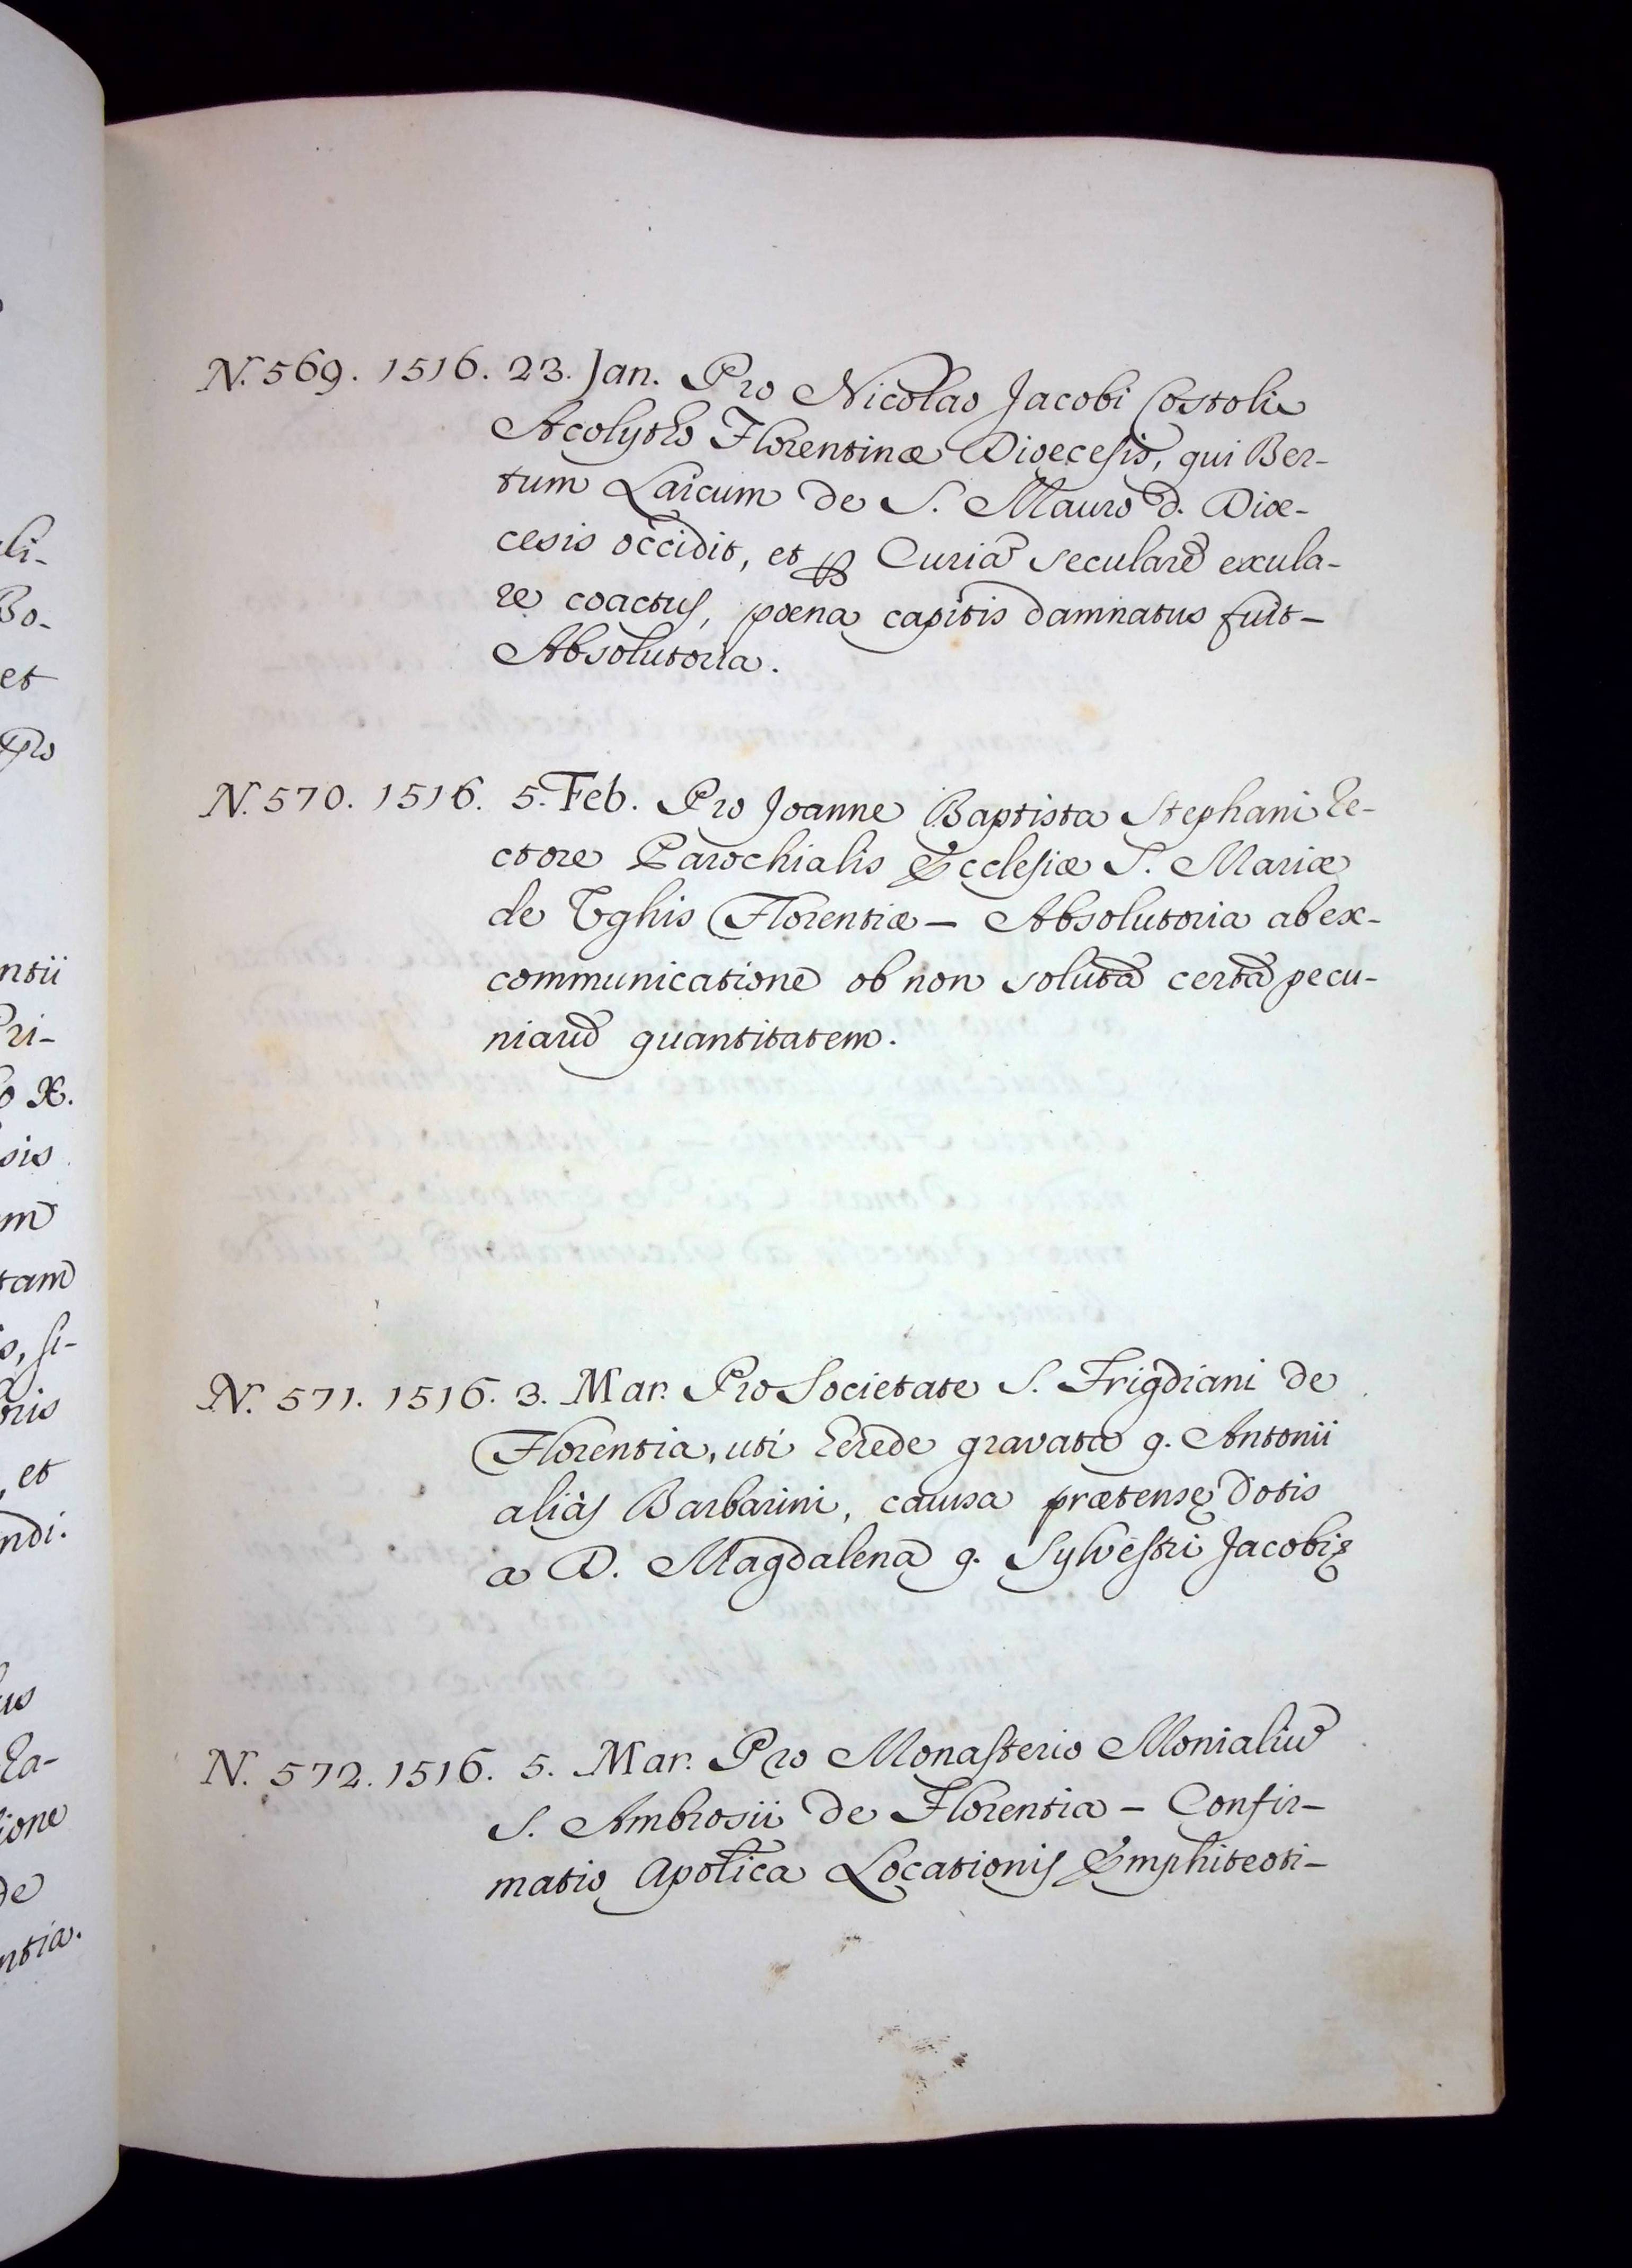 N. 569. 1516. 23. Jan. Pro Nicolao Jacobi Costoli
Acolytho Florentinæ Dioecesis, qui Ber-
tum Laicum de S. Mauro d. Diœ-
cesis occidit, et Curiã secularẽ exula-
re coactus, pœna capitis damnatus fuit –
Absolutoria.
N. 570. 1516. 5. Feb. Pro Joanne Baptista Stephani Re-
ctore Parochialis Ecclesiæ S. Mariæ
de Ughis Florentiæ – Absolutoria ab ex-
communicatione ob non solutã certã pecu-
niarũ quantitatem.
N. 571. 1516. 3. Mar. Pro Societate S. Frigdiani de
Florentia, uti herede gravata q. Antonii
aliàs Barbarini, causa prætensę Dotis
a D. Magdalena q. Sylvestri Jacobi
N. 572. 1516. 5. Mar. Pro Monasterio Monialiũ
S. Ambrosii de Florentia – Confir-
matio Apolica Locationis Emphiteoti-
li-
Bo-
et
Pro
ntii
Pri-
X.
sis
m
tam
, si-
oris
, et
ndi.
us
La-
ione
de
ntia.